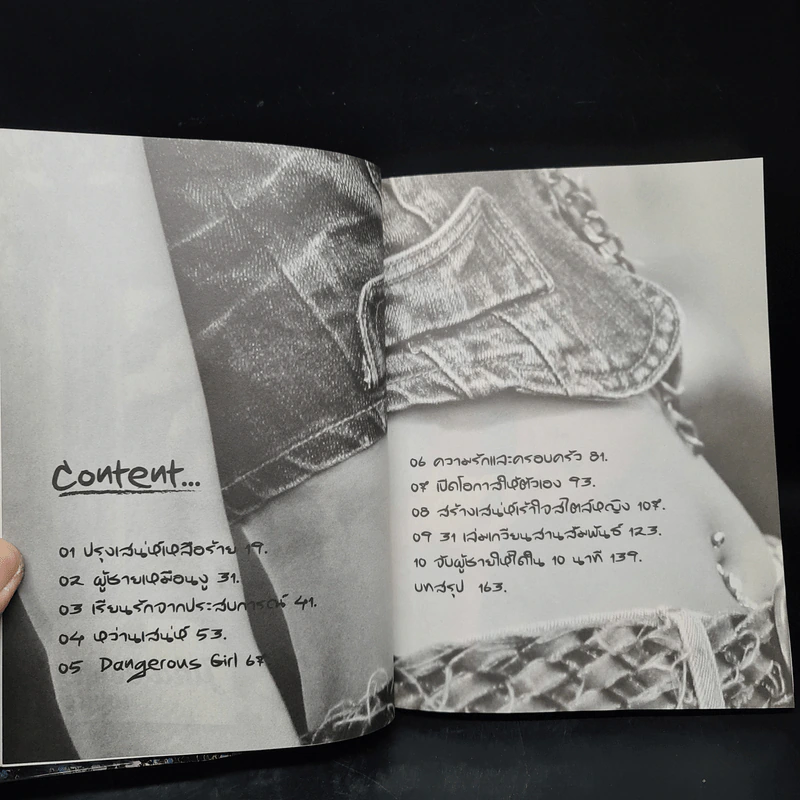 Content...
01 ปรุงเสน่ห์เหลือร้าย 19.
02 ผู้ชายเหมือนงู 31.
03 เรียนรักจากประสบการณ์ 41.
04 หว่านเสน่ห์ 53.
05 Dangerous Girl 67
06 ความรักและครอบครัว 81.
07 เปิดโอกาสให้ตัวเอง 93.
08 สร้างเสน่ห์เร้าใจสไตล์หญิง 107.
09 31 เล่มเกวียนสานสัมพันธ์ 123.
10 จับผู้ชายให้ได้ใน 10 นาที 139.
บทสรุป 163.